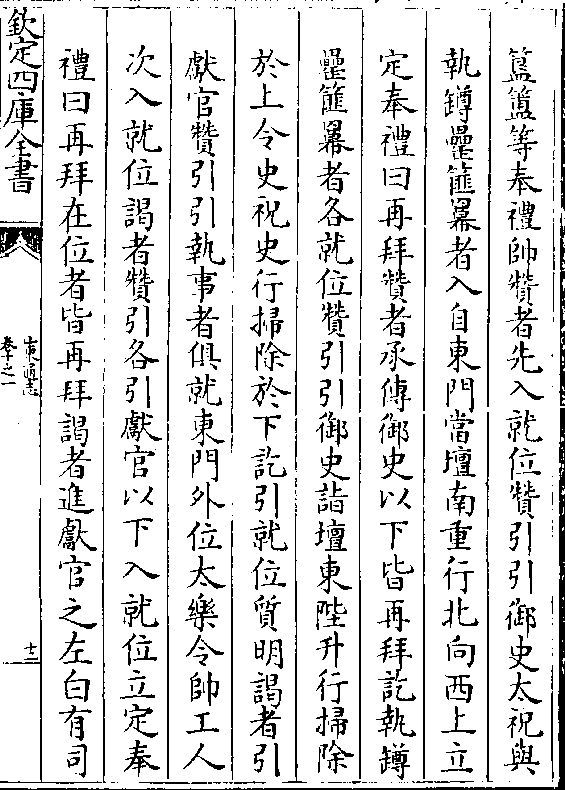 簠簋等奉禮帥贊者先入就位贊引引御史太祝與
執罇罍篚羃者入自東門當壇南重行北向西上立
定奉禮曰再拜贊者承傳御史以下皆再拜訖執罇
罍篚羃者各就位贊引引御史詣壇東陛升行掃除
於上令史祝史行掃除於下訖引就位質明謁者引
獻官贊引引執事者俱就東門外位太樂令帥工人
次入就位謁者贊引各引獻官以下入就位立定奉
禮曰再拜在位者皆再拜謁者進獻官之左白有司
欽定四庫全書
卷十之一
十二